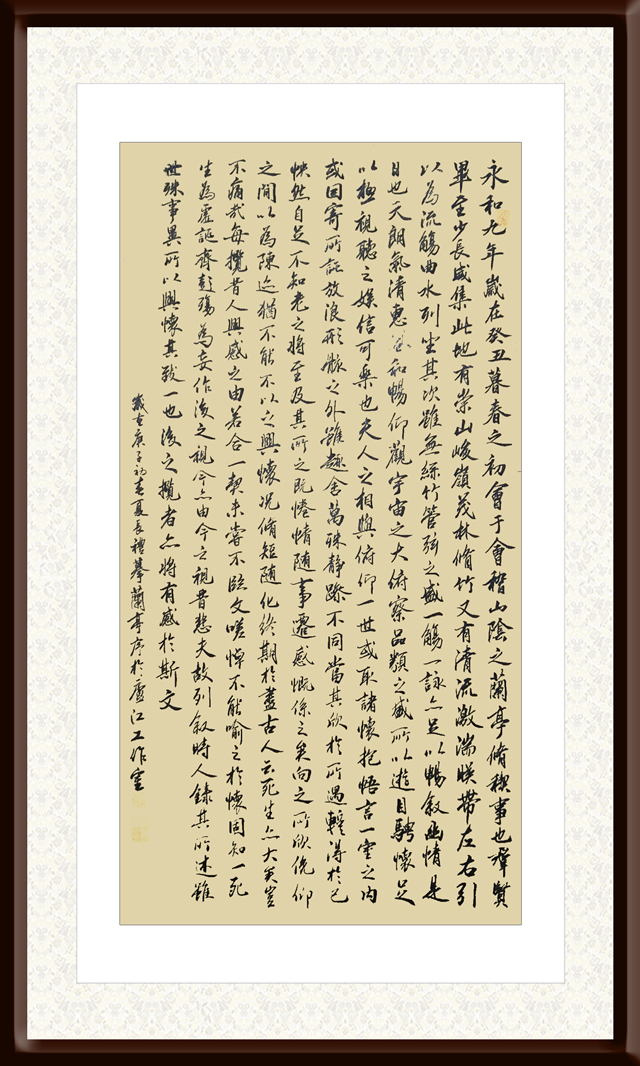 永和九年歲在癸丑暮春之初會于會稽山陰之蘭亭脩稧事也群賢
畢至少長咸集此地有崇山峻嶺茂林脩竹又有清流激湍暎帶左右引
以為流觴曲水列坐其次雖無絲竹管弦之盛一觴一詠亦足以暢叙幽情是
日也天朗氣清惠風和暢仰觀宇宙之大俯察品類之盛所以遊目騁懷足
以極視聽之娛信可樂也夫人之相與俯仰一世或取諸懷抱悟言一室之內
或因寄所託放浪形骸之外雖趣舍萬殊静躁不同當其欣於所遇蹔得於己
怏然自足不知老之將至及其所之既惓情隨事遷感慨係之矣向之所欣俛仰
之間以為陳迹猶不能不以之興懷況脩短隨化終期於盡古人云死生亦大矣豈
不痛哉每攬昔人興感之由若合一契未嘗不臨文嗟悼不能喻之於懷固知一死
生為虛誕齊彭殤為妄作後之視今亦由今之視昔悲夫故列叙時人錄其所述雖
世殊事異所以興懷其致一也後之攬者亦將有感於斯文
歲在庚子初春夏長禮摹蘭亭序於廬江工作室